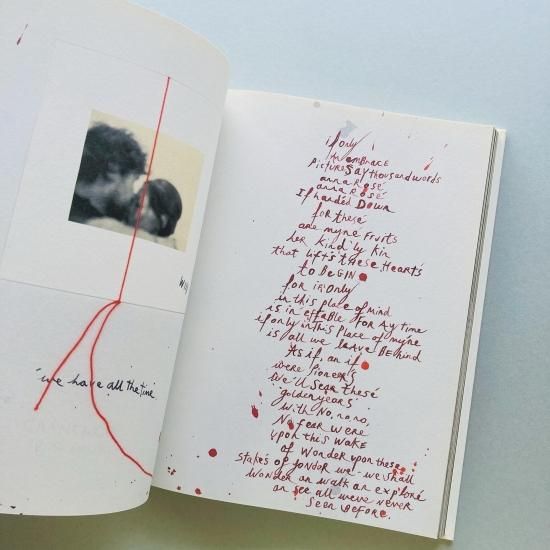 we have all the time
if only
An embrace
Pictures Say thousand words
anna Rose
anna Rose
If handed Down
for these
are myne Fruits
her kind'ly kin
that lifts these Hearts
to BeGIN
for if only
in this place of Mind
is in effable FoR Ay time
if only in this Place of myne
is all we leave BEhind
As if, an if
were Pioneers
We'll Sear these
'goldenyears'
with No, no no,
No fear were
upon this wake
of wonder upon these
stakes of yondor we - we shall
wonder an walk an explore
an see all weve Never
Seen Before.